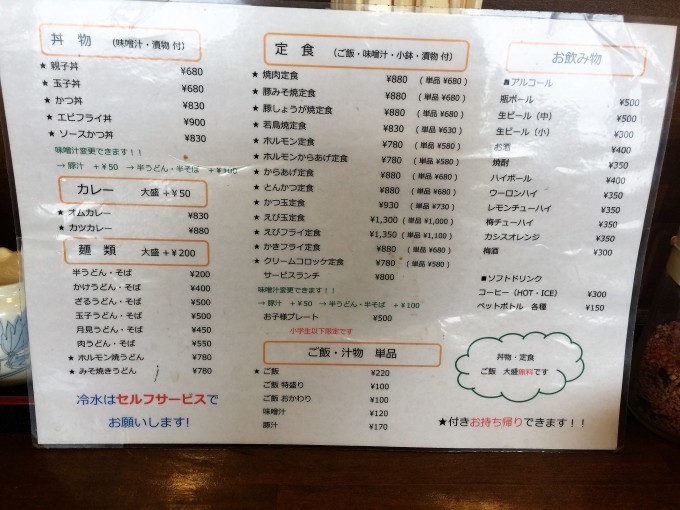 丼 物 (味噌汁・漬物 付)
★ 親子丼 ¥680
★ 玉子丼 ¥680
★ かつ丼 ¥830
★ エビフライ丼 ¥900
★ ソースかつ丼 ¥830
味噌汁変更できます！！
→ 豚汁 ＋¥50 → 半うどん・半そば ＋¥100
カレー 大盛 ＋¥50
★ オムカレー ¥830
★ カツカレー ¥880
麺 類 大盛 ＋¥200
半うどん・そば ¥200
かけうどん・そば ¥400
ざるうどん・そば ¥500
玉子うどん・そば ¥500
月見うどん・そば ¥450
肉うどん・そば ¥550
★ ホルモン焼うどん ¥780
★ みそ焼きうどん ¥780
冷水はセルフサービスで
お願いします!
定 食 (ご飯・味噌汁・小鉢・漬物 付)
★ 焼肉定食 ¥880 (単品 ¥680)
★ 豚みそ焼定食 ¥880 (単品 ¥680)
★ 豚しょうが焼定食 ¥880 (単品 ¥680)
★ 若鳥焼定食 ¥830 (単品 ¥630)
★ ホルモン定食 ¥780 (単品 ¥580)
★ ホルモンからあげ定食 ¥780 (単品 ¥580)
★ からあげ定食 ¥880 (単品 ¥680)
★ とんかつ定食 ¥880 (単品 ¥680)
★ かつ玉定食 ¥930 (単品 ¥730)
★ えび玉定食 ¥1,300 (単品 ¥1,000)
★ えびフライ定食 ¥1,350 (単品 ¥1,100)
★ かきフライ定食 ¥880 (単品 ¥680)
★ クリームコロッケ定食 ¥780 (単品 ¥580)
サービスランチ ¥800
味噌汁変更できます！！
→ 豚汁 ＋¥50 → 半うどん・半そば ＋¥100
お子様プレート ¥500
小学生以下限定です
ご飯・汁物 単品
★ ご飯 ¥220
ご飯 特盛り ¥100
ご飯 おかわり ¥100
味噌汁 ¥120
豚汁 ¥170
お飲み物
■アルコール
瓶ボール ¥500
生ビール (中) ¥500
生ビール (小) ¥300
お酒 ¥400
焼酎 ¥350
ハイボール ¥400
ウーロンハイ ¥350
レモンチューハイ ¥350
梅チューハイ ¥350
カシスオレンジ ¥350
梅酒 ¥300
■ソフトドリンク
コーヒー (HOT・ICE) ¥300
ペットボトル 各種 ¥150
丼物・定食
ご飯 大盛無料です
★付きお持ち帰りできます！！